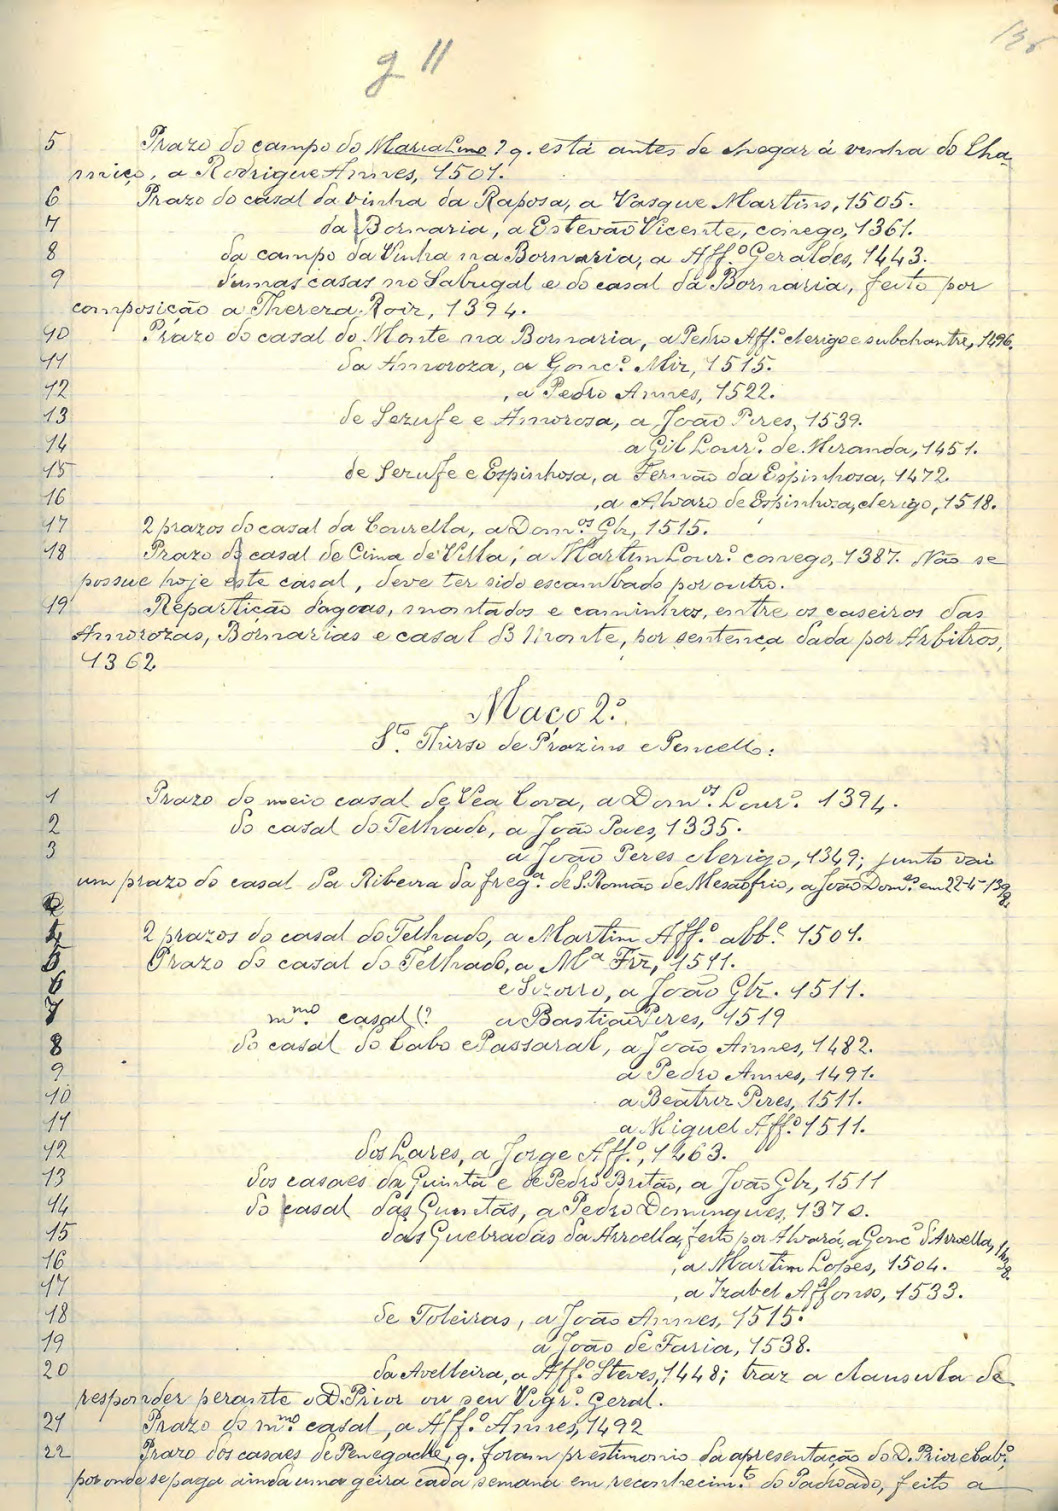 g 11
5 Prazo do campo do Maria Lino? q. está antes de chegar á vinha do Cha-
miço, a Rodrigue Annes, 1501.
6 Prazo do casal da vinha da Raposa, a Vasque Martins, 1505.
7 da Bornaria, a Estevão Vicente, conego, 1361.
8 do campo da Vinha na Bornaria, a Aff.º Geraldes, 1443.
9 dumas casas no Sabugal e do casal da Bornaria, feito por
composição a Thereza Roiz, 1394.
10 Prazo do casal do Monte na Bornaria, a Pedro Aff.º clerigo e subchantre, 1496.
11 da Amoroza, a Gonc.º Miz, 1515.
12 , a Pedro Annes, 1522.
13 de Sezufe e Amorosa, a João Pires, 1539.
14 a Gil Lour.º de Miranda, 1451.
15 de Sezufe e Espinhosa, a Fernão da Espinhosa, 1472
16 , a Alvaro de Espinhoza, clerigo, 1518.
17 2 prazos do casal da Courella, a Dom.os Glz, 1515.
18 Prazo do casal de Cima de Villa, a Martim Lour.º conego, 1387. Não se
possue hoje este casal, deve ter sido escambado por outro.
19 Repartição dagoas, montados e caminhos, entre os caseiros das
Amorozas, Bornarias e casal do Monte, por sentença dada por Arbitros,
1362
Maço 2.º
S.to Thirso de Prazins e Pencello:
1 Prazo do meio casal de Vea Cova, a Dom.os Lour.º 1394.
2 do casal do Telhado, a João Paes, 1335.
3 a João Peres clerigo, 1349; junto vai
um prazo do casal da Ribeira da freg.a de S. Romão de Mesãofrio, a João Dom.es em 22-4-1392.
4 2 prazos do casal do Telhado, a Martim Aff.º abb.e 1501.
5 Prazo do casal do Telhado, a M.a Frz, 1511.
6 e Sizorro, a João Glz. 1511.
7 m.mo casal (? a Bastião Pires, 1519
8 do casal do Cabo e Passaral, a João Annes, 1482.
9 a Pedro Annes, 1491.
10 a Beatriz Peres, 1511.
11 a Miguel Aff.º 1511.
12 dos Lares, a Jorge Aff.º, 1463.
13 dos casaes da Quintã e de Pedro Britão, a João Glz, 1511
14 do casal das Quintãs, a Pedro Domingues, 1370.
15 das Quebradas da Arroella, feito por Alvará, a Gonc.º d'Arroella,
16 , a Martim Lopes, 1504.
17 , a Izabel Affonso, 1533.
18 de Toleiras, a João Annes, 1515.
19 a João de Faria, 1538.
20 da Avelleira, a Aff.º Steves, 1448; traz a clausula de
responder perante o D. Prior ou seu Vigr.º Geral.
21 Prazo do m.mo casal, a Aff.º Annes, 1492
22 Prazo dos casaes de Penegache, q. foram prestimonio da apresentação do D. Prior e Cab.º,
por onde se paga ainda uma geira cada semana em reconhecim.to do Padroado, feito a